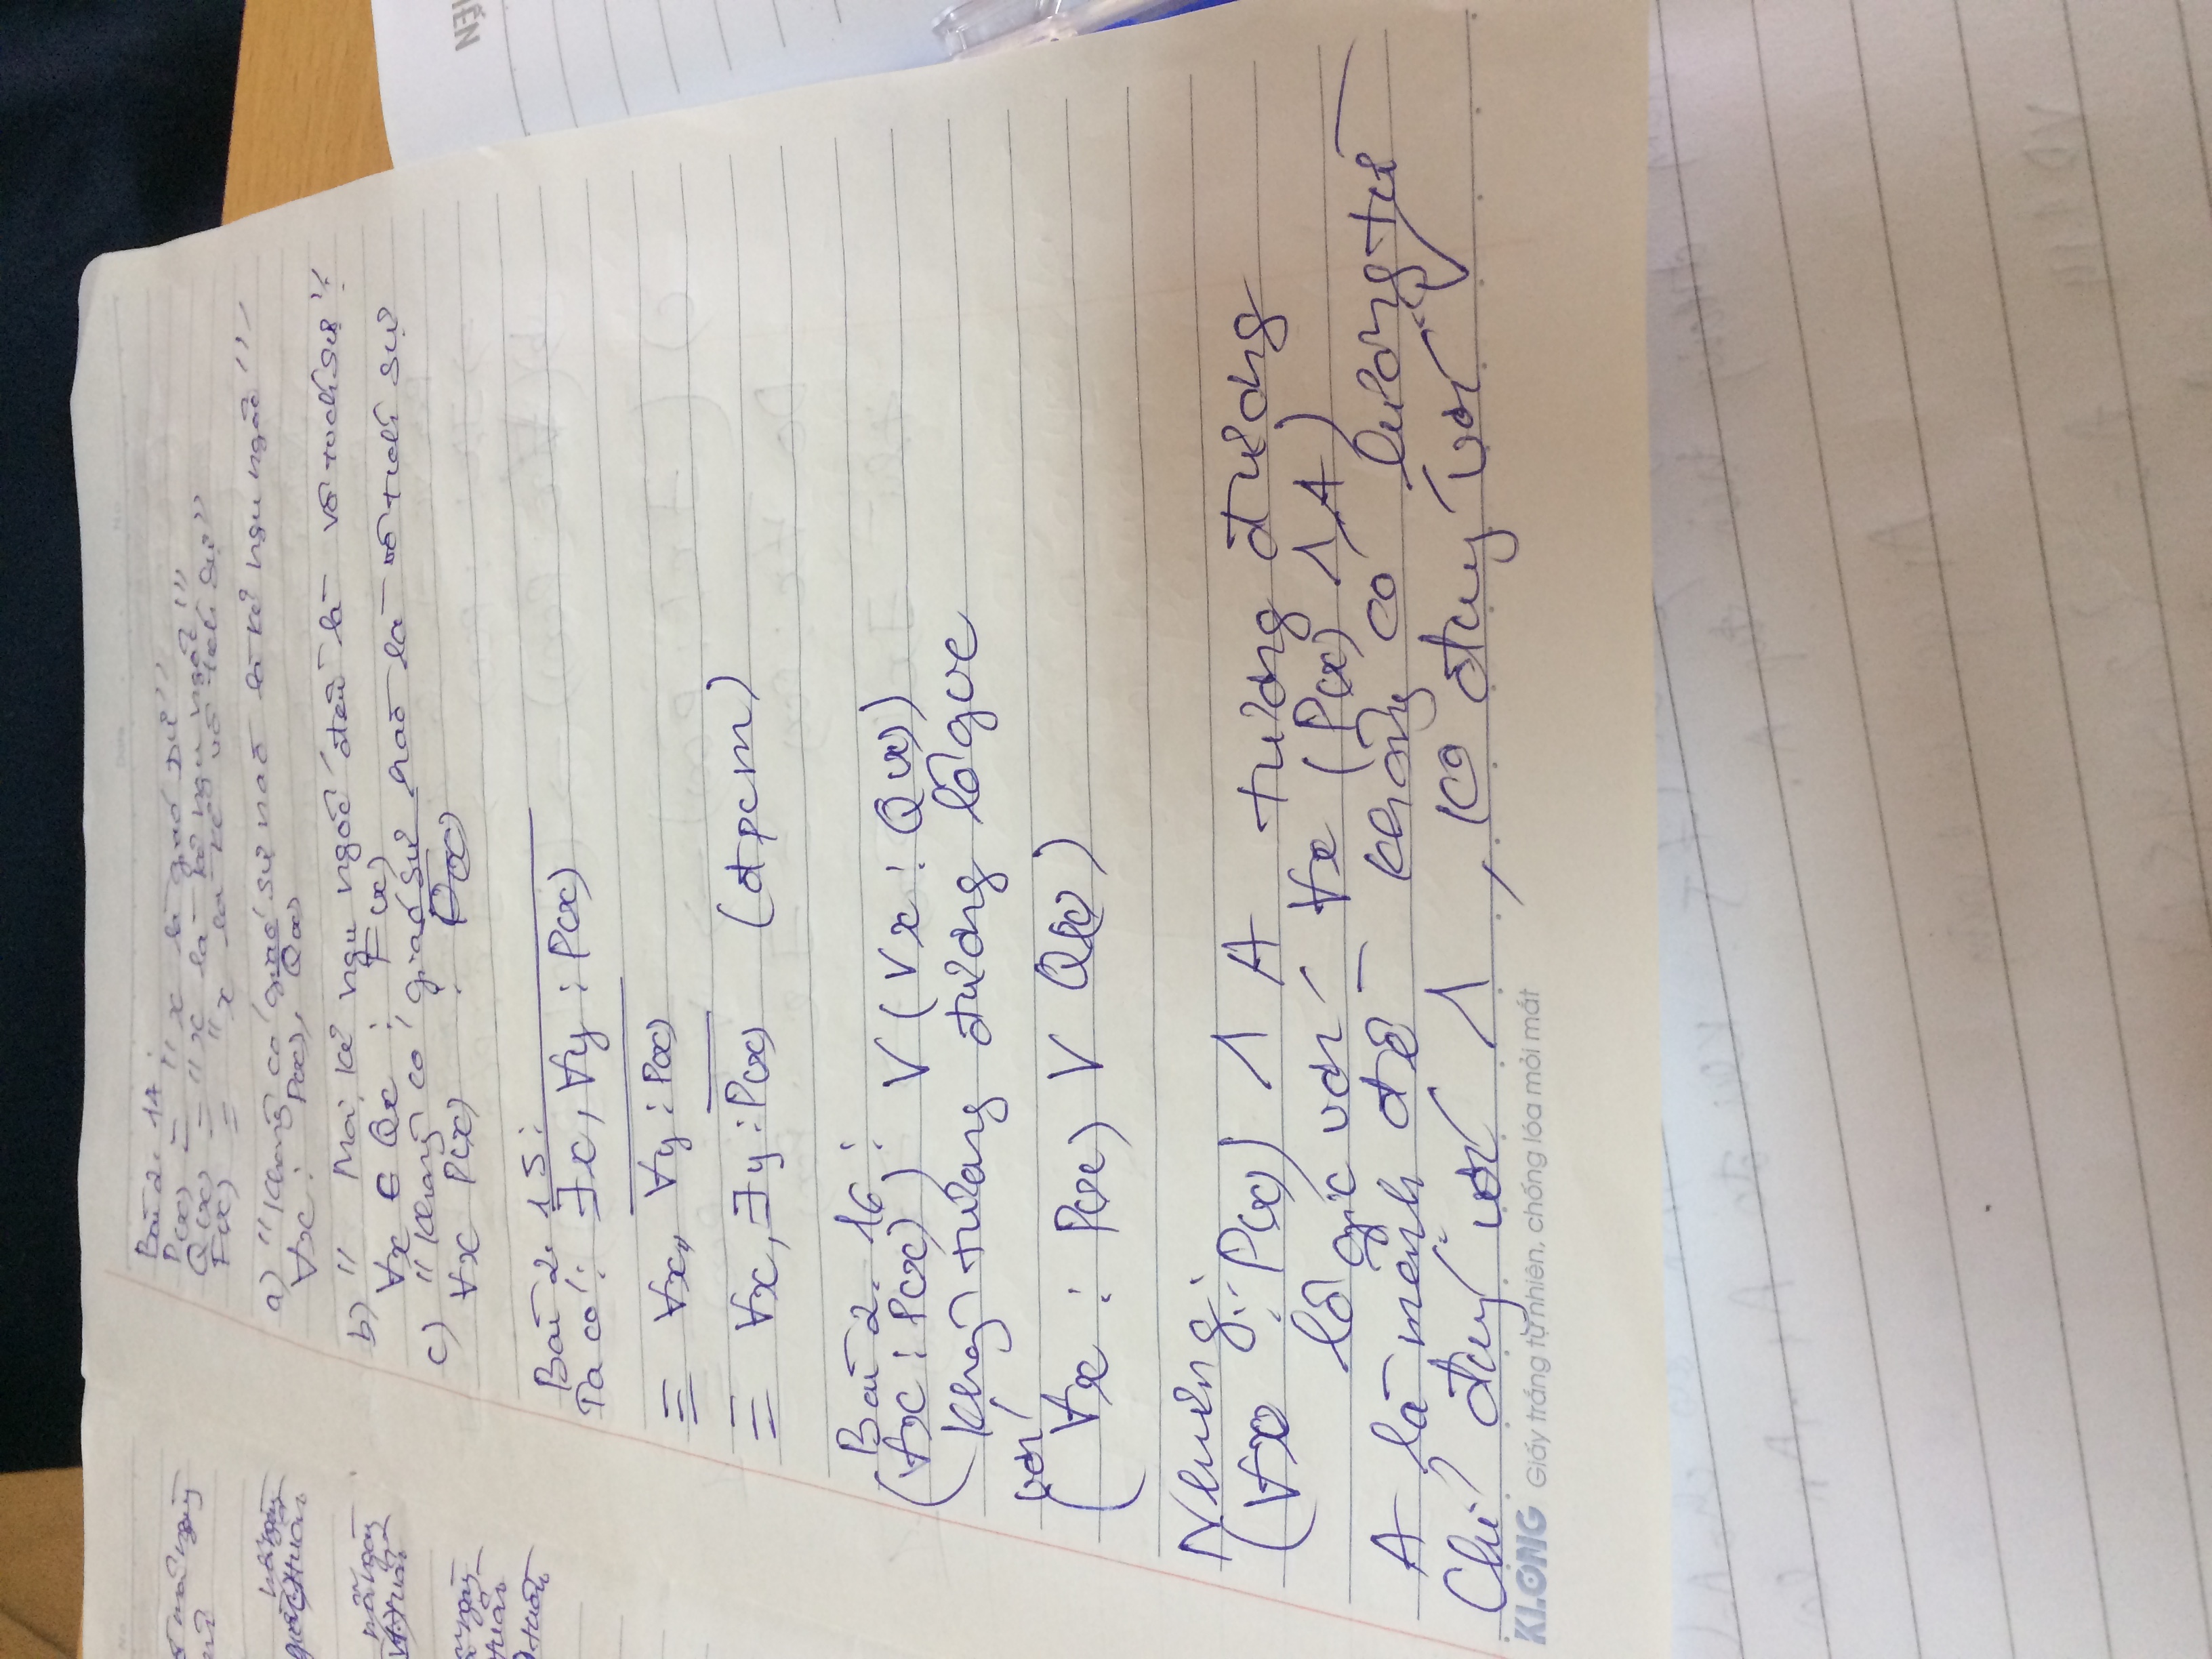 Bài 2. 14:
P(x) = "x là giáo sư"
Q(x) = "x là kẻ ngu ngốc"
F(x) = "x là kẻ vô tích sự"
a) "Không có giáo sư nào là kẻ ngu ngốc"
∀x : P(x), Q̅(x)
b) " Mọi kẻ ngu ngốc đều là vô tích sự"
∀x ∈ Qx : F(x)
c) "Không có giáo sư nào là vô tích sự
∀x P(x) :
Bài 2. 15:
Ta có: \overline{∃x, ∀y : P(x)}
≡ ∀x, \overline{∀y : P(x)}
≡ ∀x, ∃y : \overline{P(x)} (đpcm)
Bài 2. 16 :
(∀x : P(x)) V (∀x : Q(x))
không tương đương lôgic
với
( ∀x : P(x) V Q(x) )
Nhưng:
(∀x : P(x)) ∧ A tương đương
lôgic với ∀x (P(x) ∧ A)
A là mệnh đề không có lượng từ
Chỉ đúng với ∧ , ko đúng với V
KLONG Giấy trắng tự nhiên, chống lóa mỏi mắt
mỗi ngày
tuần
mỗi ngày
tuần
tuần
tuần